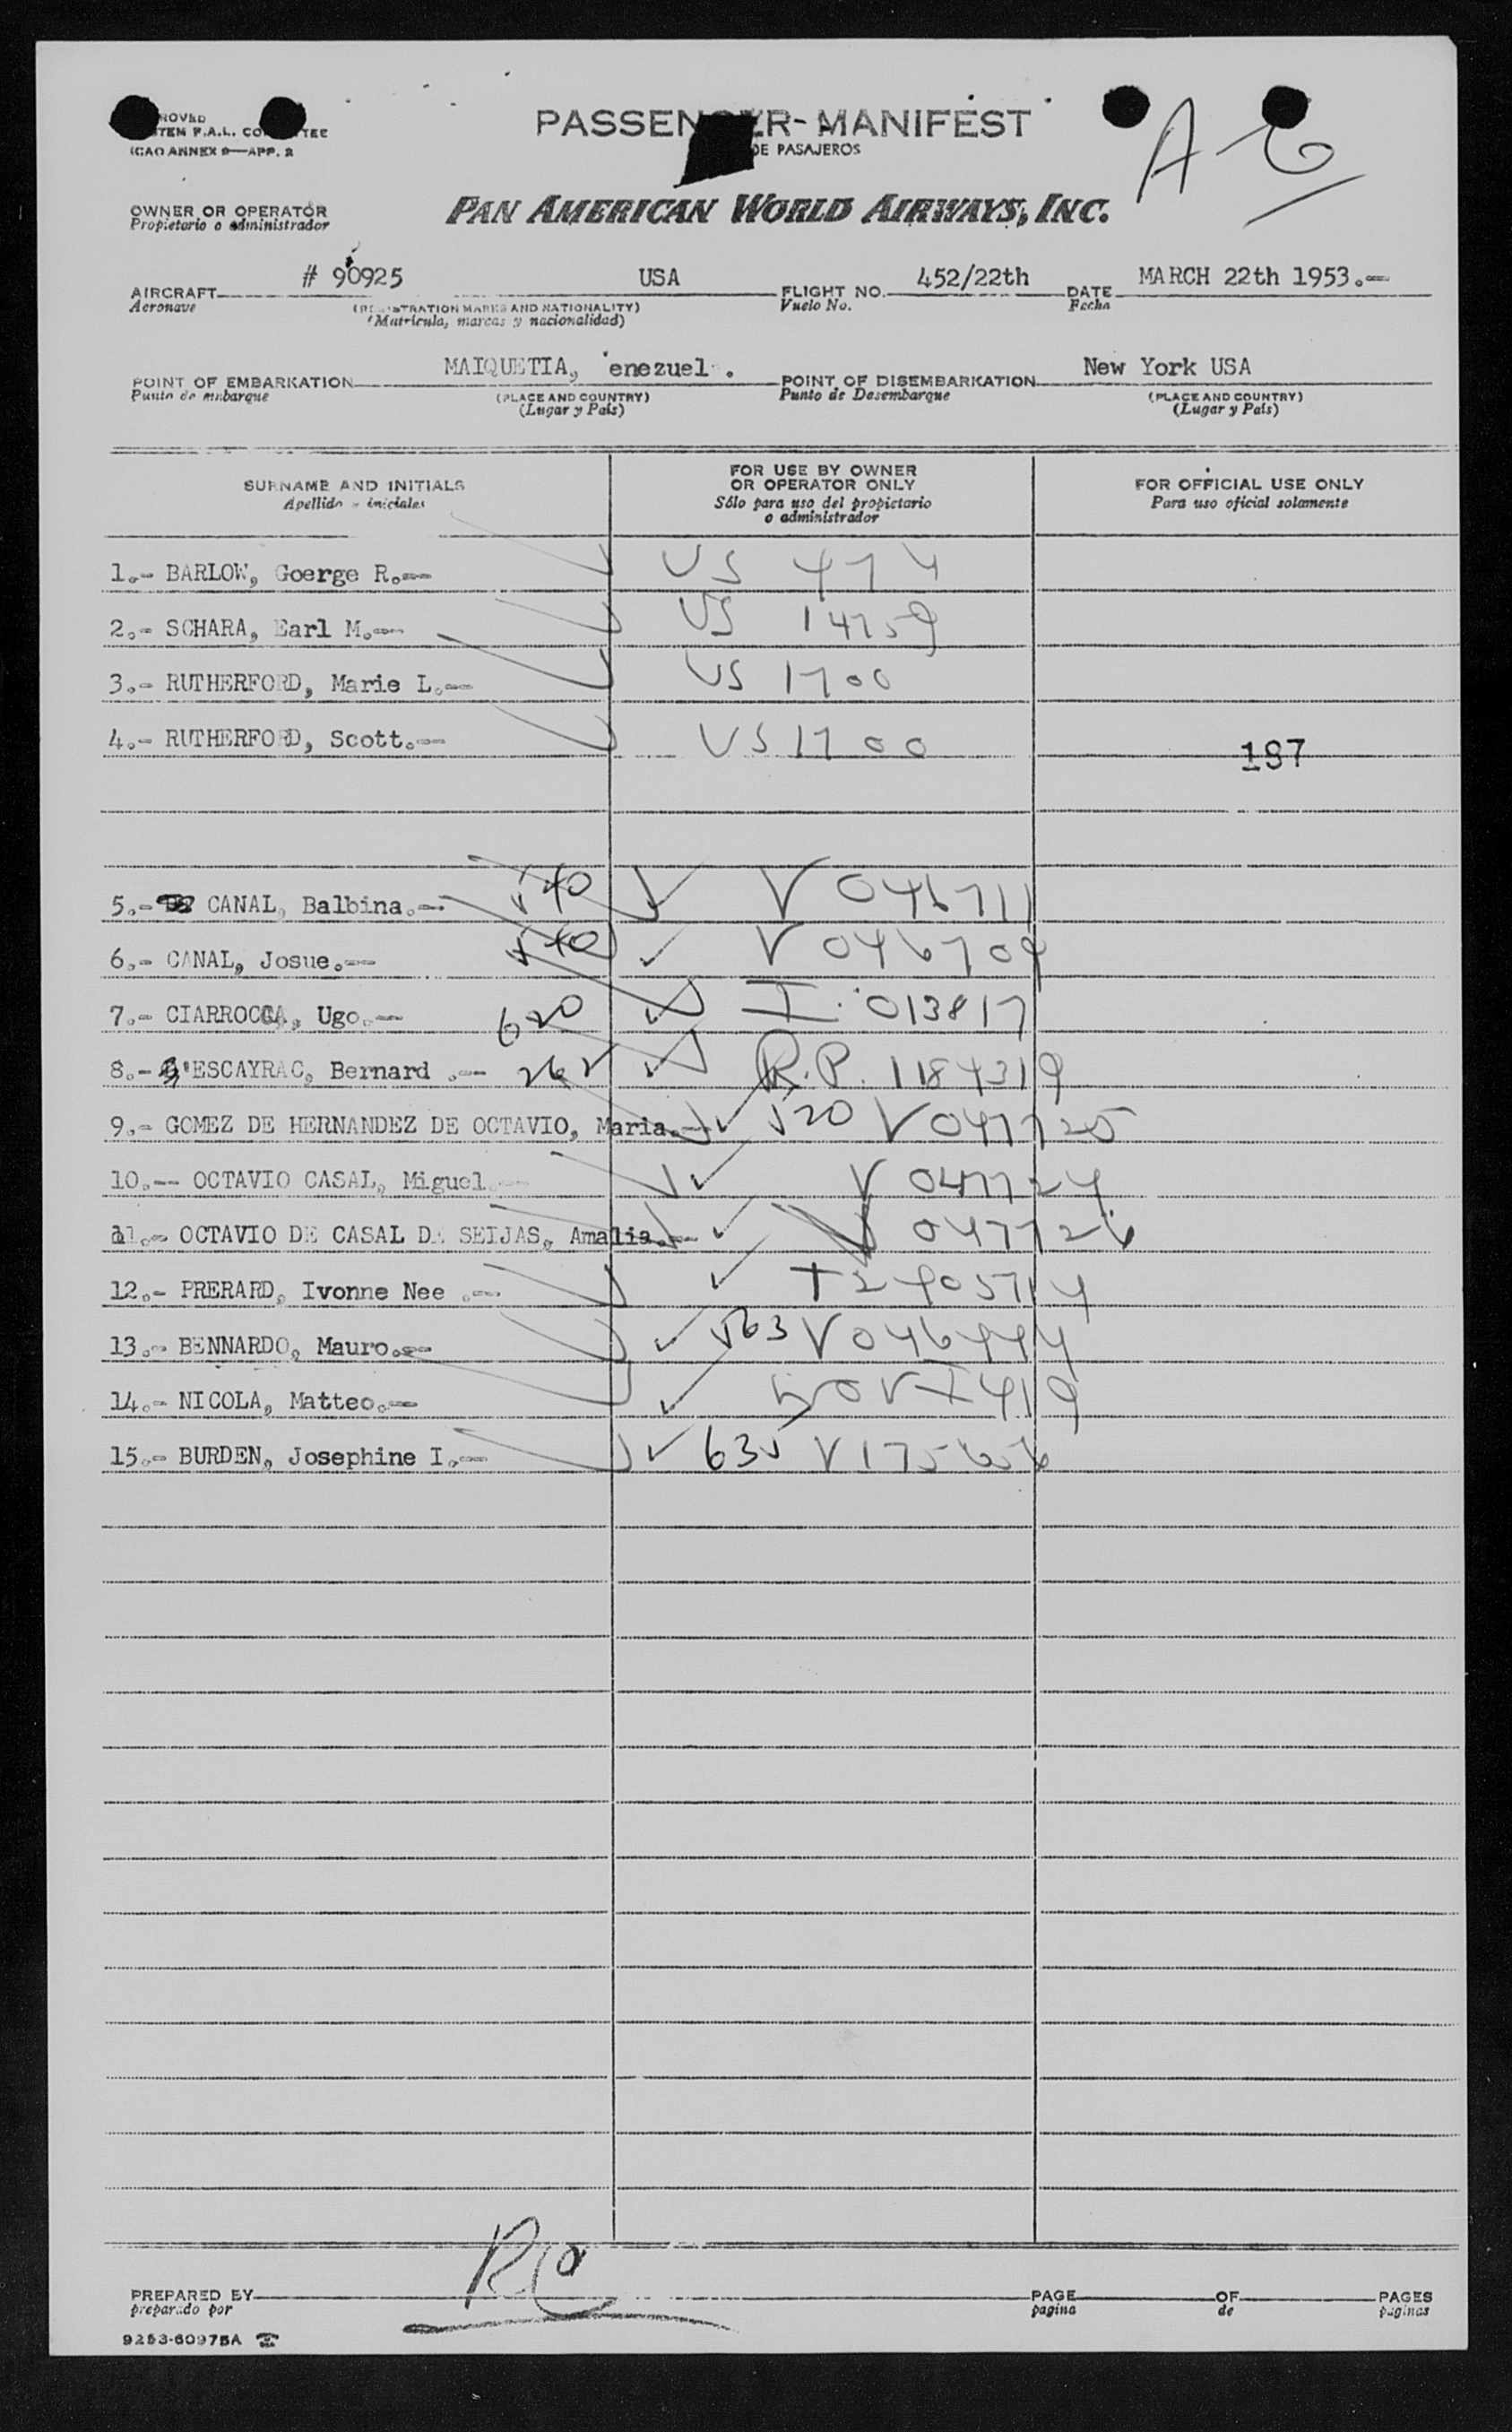 PASSEN R-MANIFEST
DE PASAJEROS
ICAO ANNEX 9—APP. 2
A-6
OWNER OR OPERATOR
Propietario o administrador
PAN AMERICAN WORLD AIRWAYS, INC.
AIRCRAFT # 90925 USA FLIGHT NO. 452/22th DATE MARCH 22th 1953.-
Aeronave (REGISTRATION MARKS AND NATIONALITY) Vuelo No. Fecha
(Matrícula, marcas y nacionalidad)
POINT OF EMBARKATION MAIQUETIA, enezuel . POINT OF DISEMBARKATION New York USA
Punto de embarque (PLACE AND COUNTRY) Punto de Desembarque (PLACE AND COUNTRY)
(Lugar y País) (Lugar y País)
SURNAME AND INITIALS FOR USE BY OWNER OR OPERATOR ONLY FOR OFFICIAL USE ONLY
Apellido e iniciales Sólo para uso del propietario o administrador Para uso oficial solamente
1.- BARLOW, Goerge R.-- US 474
2.- SCHARA, Earl M.-- US 14759
3.- RUTHERFORD, Marie L.-- US 1700
4.- RUTHERFORD, Scott.-- US 1700 187
5.- CANAL, Balbina.-- 540 V 046711
6.- CANAL, Josue.-- 540 V 046709
7.- CIARROCCA, Ugo.-- 620 I 013817
8.- D'ESCAYRAC, Bernard .-- 262 R.P. 1184319
9.- GOMEZ DE HERNANDEZ DE OCTAVIO, Maria.-- 520 V 047725
10.-- OCTAVIO CASAL, Miguel.-- V 047724
11.- OCTAVIO DE CASAL DE SEIJAS, Amalia.-- V 047726
12.- PRERARD, Ivonne Nee .--
13.- BENNARDO, Mauro.-- 563 V 046444
14.- NICOLA, Matteo.--
15.- BURDEN, Josephine I.-- 635 V 175656
PREPARED BY PAGE OF PAGES
preparado por pagina de paginas
9253-60975A